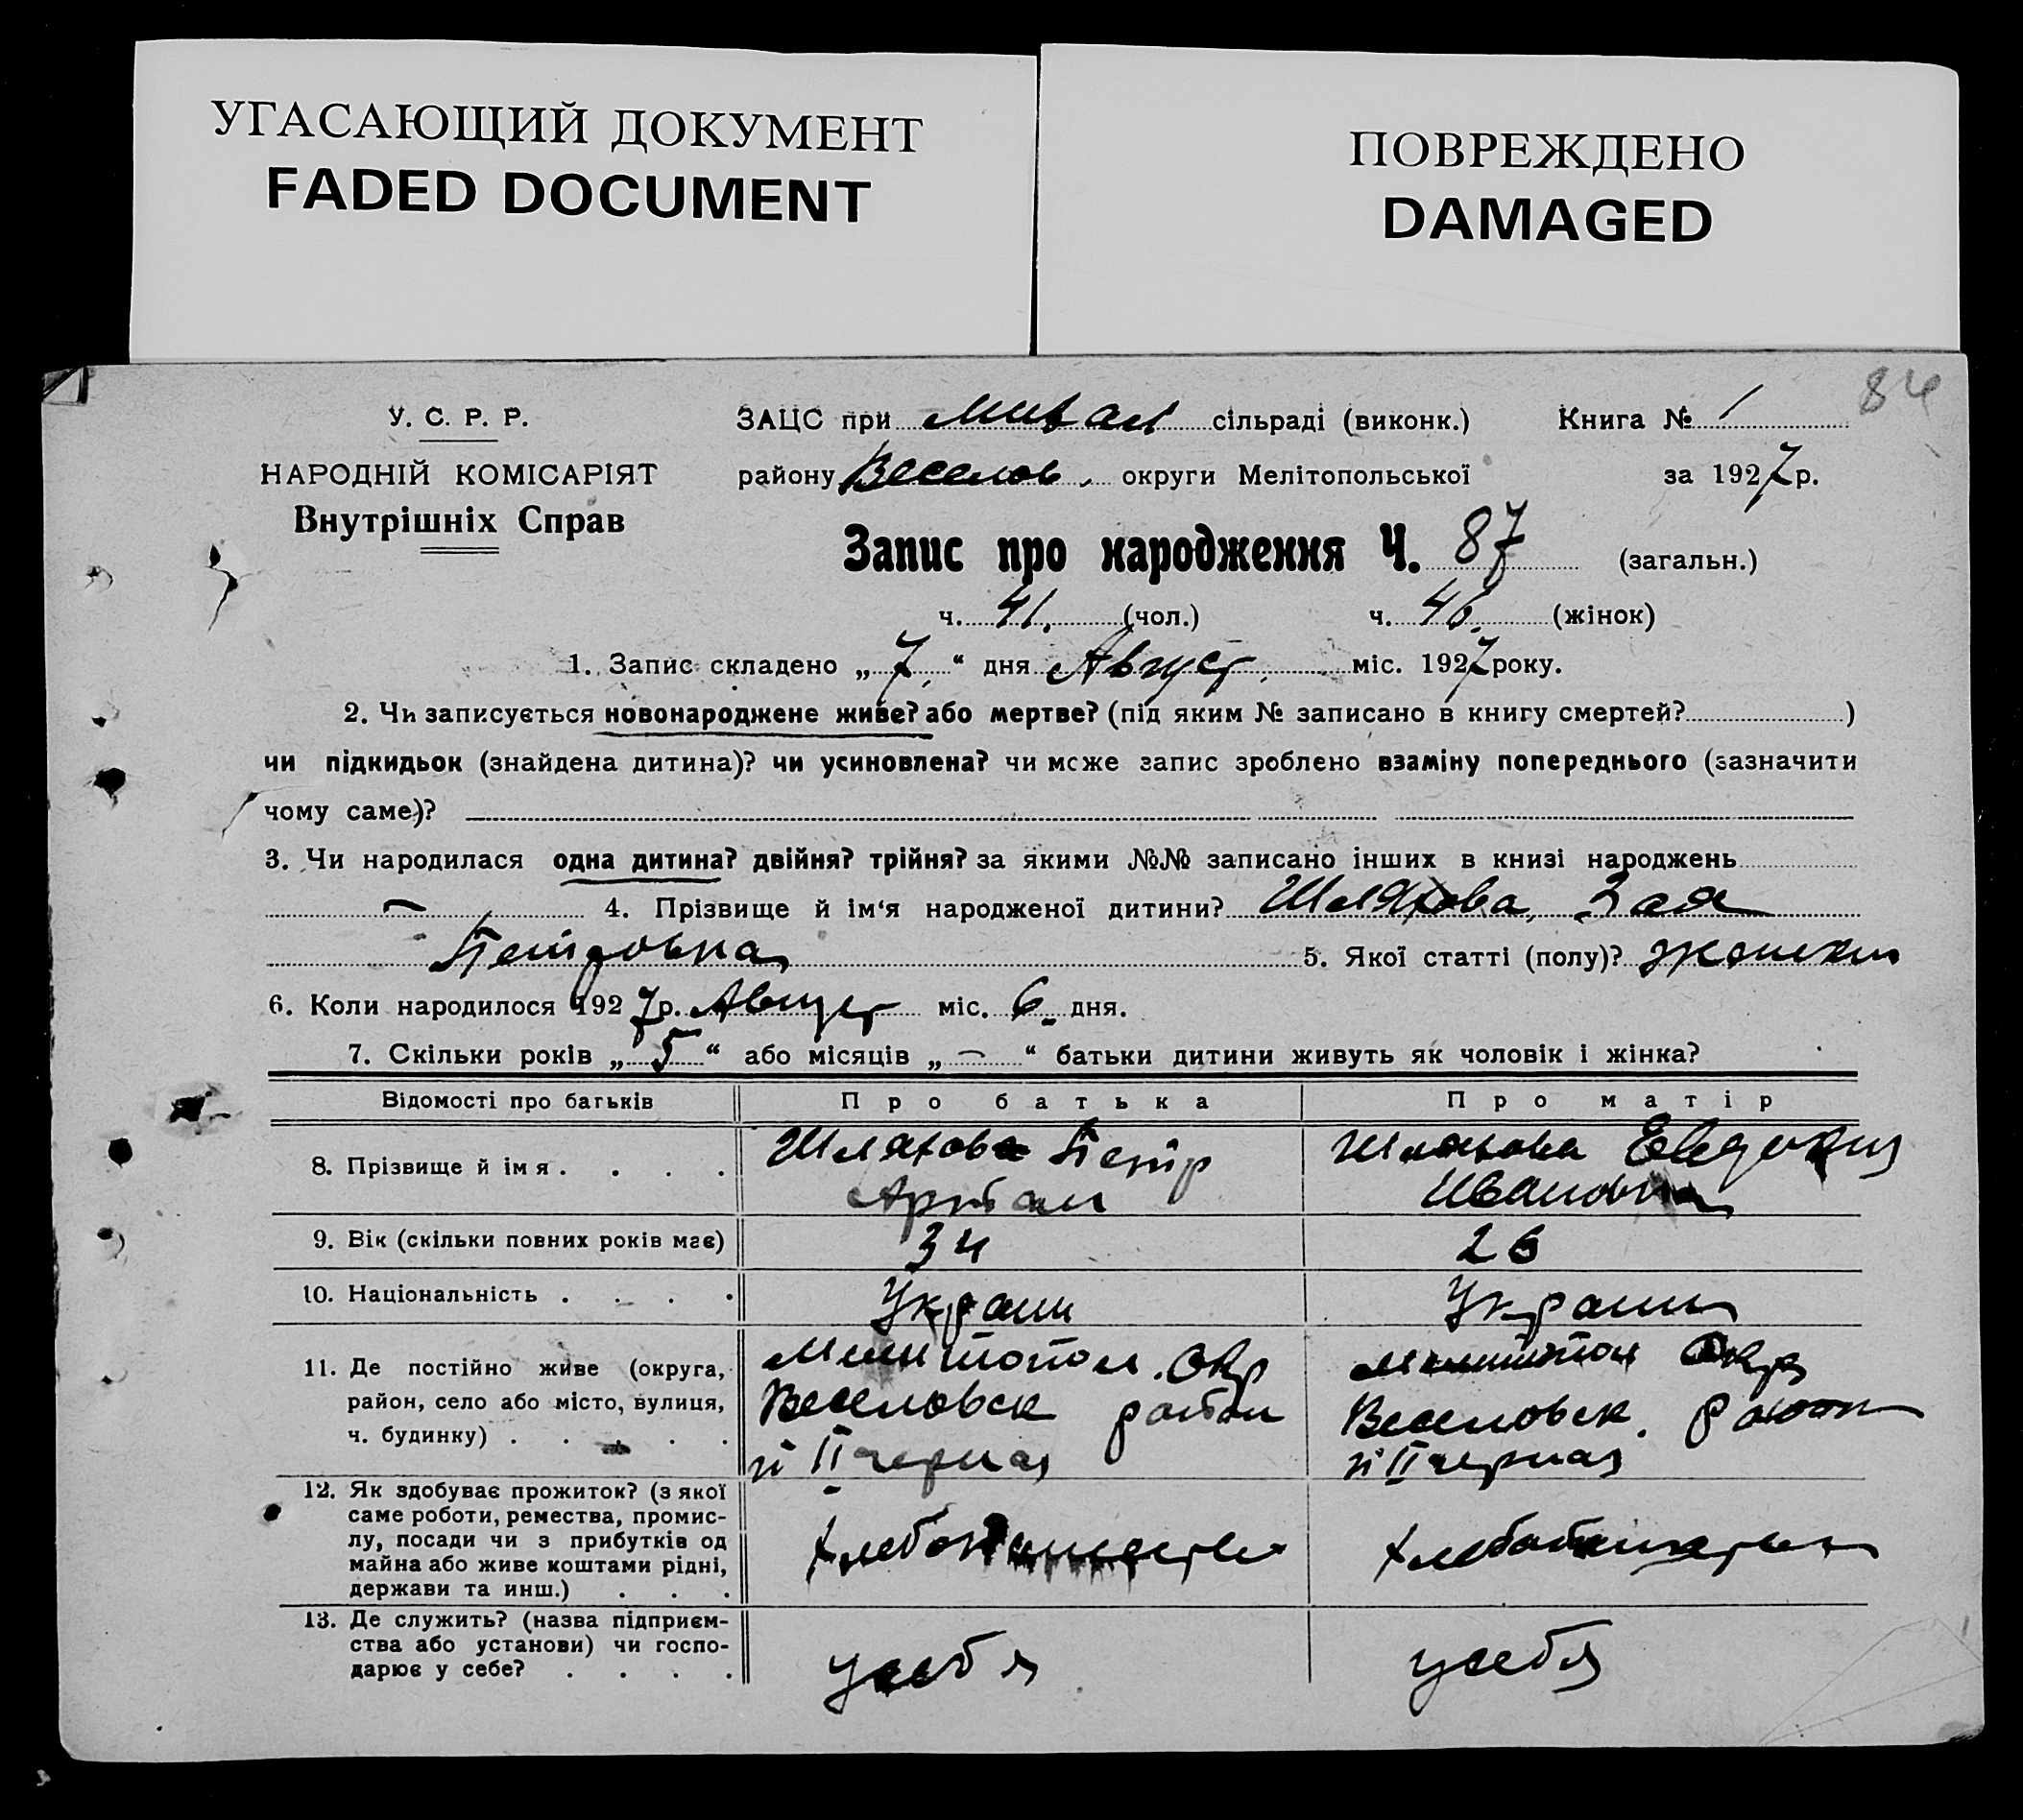 УГАСАЮЩИЙ ДОКУМЕНТ
FADED DOCUMENT
ПОВРЕЖДЕНО
DAMAGED
84
У. С. Р. Р.
НАРОДНІЙ КОМІСАРІЯТ
Внутрішніх Справ
ЗАЦС при сільраді (виконк.) Книга № 1
району Веселов. округи Мелітопольської за 1927 р.
Запис про народження Ч. 87 (загальн.)
ч. 41. (чол.) ч. 46. (жінок)
1. Запис складено „ 7 “ дня Август міс. 1927 року.
2. Чи записується новонароджене живе? або мертве? (під яким № записано в книгу смертей? )
чи підкидьок (знайдена дитина)? чи усиновлена? чи може запис зроблено взаміну попереднього (зазначити
чому саме)?
3. Чи народилася одна дитина? двійня? трійня? за якими №№ записано інших в книзі народжень
— 4. Прізвище й ім‘я народженої дитини? Шляхова, Зоя
Петровна 5. Якої статті (полу)? женский
6. Коли народилося 1927 р. Август міс. 6 дня.
7. Скільки років „ 5 “ або місяців „ — “ батьки дитини живуть як чоловік і жінка?
Відомості про батьків Про батька Про матір
8. Прізвище й ім я . . . . Шляхов Петр Шляхова Евдокия
Ивановна
9. Вік (скільки повних років має) 34 26
10. Національність . . . . Украин Украин
11. Де постійно живе (округа, Мелитопол. Окр Мелитопол Окр
район, село або місто, вулиця, Веселовск район Веселовск. район
ч. будинку) . . . . .
12. Як здобуває прожиток? (з якої
саме роботи, ремества, промис-
лу, посади чи з прибутків од
майна або живе коштами рідні,
держави та инш.) . . .
13. Де служить? (назва підприєм-
ства або установи) чи госпо- у себя у себя
дарює у себе? . . . .